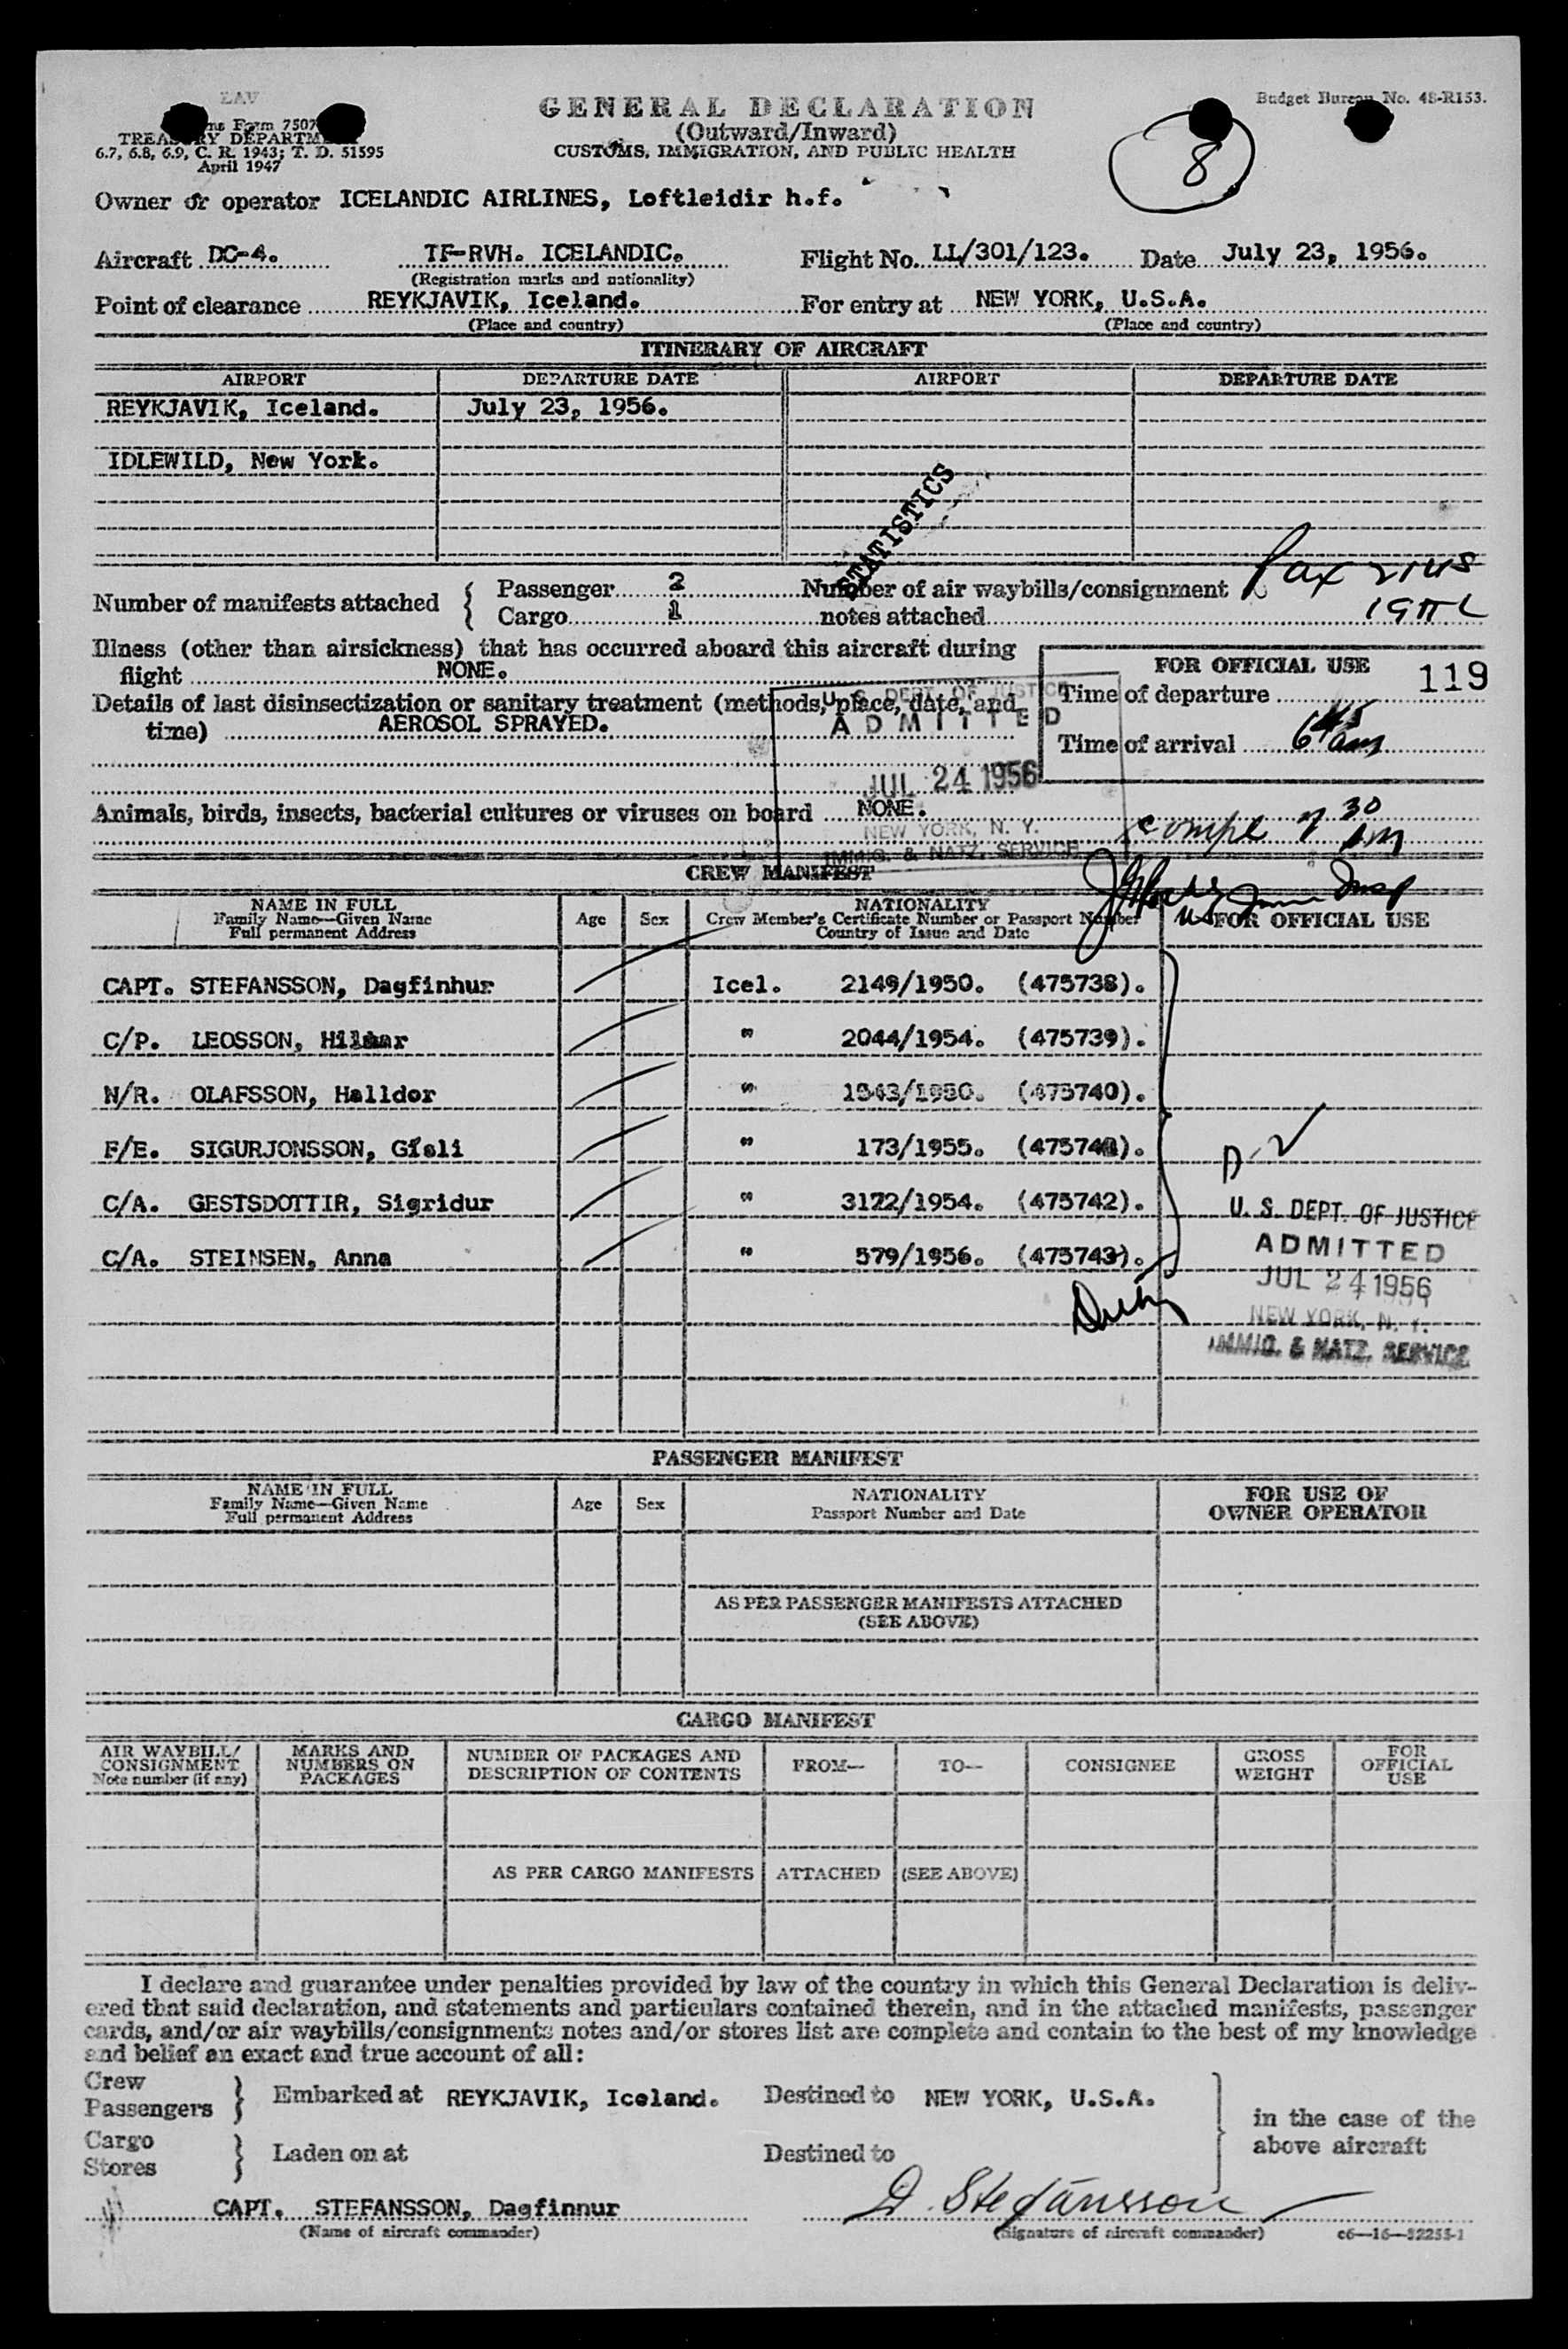 EAV
GENERAL DECLARATION
Budget Bureau No. 48-R153.
Form 7507
(Outward/Inward)
TREASURY DEPARTMENT
CUSTOMS, IMMIGRATION, AND PUBLIC HEALTH
6.7, 6.8, 6.9, C. R. 1943; T. D. 51595
April 1947
8
Owner or operator ICELANDIC AIRLINES, Loftleidir h.f.
Aircraft DC-4. TF-RVH. ICELANDIC. Flight No. LL/301/123. Date July 23, 1956.
(Registration marks and nationality)
Point of clearance REYKJAVIK, Iceland. For entry at NEW YORK, U.S.A.
(Place and country) (Place and country)
ITINERARY OF AIRCRAFT
AIRPORT DEPARTURE DATE AIRPORT DEPARTURE DATE
REYKJAVIK, Iceland. July 23, 1956.
IDLEWILD, New York.
STATISTICS
Number of manifests attached { Passenger 2 Number of air waybills/consignment
Cargo 1 notes attached
Pax
Illness (other than airsickness) that has occurred aboard this aircraft during
flight NONE.
FOR OFFICIAL USE 119
Details of last disinsectization or sanitary treatment (methods, place, date, and
time) AEROSOL SPRAYED.
Time of departure
Time of arrival 6 45 am
U. S. DEPT. OF JUSTICE
ADMITTED
JUL 24 1956
NEW YORK, N. Y.
IMMIG. & NATZ. SERVICE
Animals, birds, insects, bacterial cultures or viruses on board NONE.
compl 7 30 am
CREW MANIFEST
NAME IN FULL
Family Name—Given Name
Full permanent Address
Age Sex
NATIONALITY
Crew Member's Certificate Number or Passport Number
Country of Issue and Date
FOR OFFICIAL USE
CAPT. STEFANSSON, Dagfinhur Icel. 2149/1950. (475738).
C/P. LEOSSON, Hilmar " 2044/1954. (475739).
N/R. OLAFSSON, Halldor " 1843/1950. (475740).
F/E. SIGURJONSSON, Gísli " 173/1955. (475741).
C/A. GESTSDOTTIR, Sigridur " 3122/1954. (475742).
C/A. STEINSEN, Anna " 579/1956. (475743).
U. S. DEPT. OF JUSTICE
ADMITTED
JUL 24 1956
NEW YORK, N. Y.
IMMIG. & NATZ. SERVICE
PASSENGER MANIFEST
NAME IN FULL
Family Name—Given Name
Full permanent Address
Age Sex
NATIONALITY
Passport Number and Date
FOR USE OF
OWNER OPERATOR
AS PER PASSENGER MANIFESTS ATTACHED
(SEE ABOVE)
CARGO MANIFEST
AIR WAYBILL/
CONSIGNMENT
Note number (if any)
MARKS AND
NUMBERS ON
PACKAGES
NUMBER OF PACKAGES AND
DESCRIPTION OF CONTENTS
FROM— TO— CONSIGNEE
GROSS
WEIGHT
FOR
OFFICIAL
USE
AS PER CARGO MANIFESTS ATTACHED (SEE ABOVE)
I declare and guarantee under penalties provided by law of the country in which this General Declaration is deliv-
ered that said declaration, and statements and particulars contained therein, and in the attached manifests, passenger
cards, and/or air waybills/consignments notes and/or stores list are complete and contain to the best of my knowledge
and belief an exact and true account of all:
Crew
Passengers } Embarked at REYKJAVIK, Iceland. Destined to NEW YORK, U.S.A.
in the case of the
above aircraft
Cargo
Stores } Laden on at Destined to
CAPT. STEFANSSON, Dagfinnur D. Stefánsson
(Name of aircraft commander) (Signature of aircraft commander) c6—16—52255-1